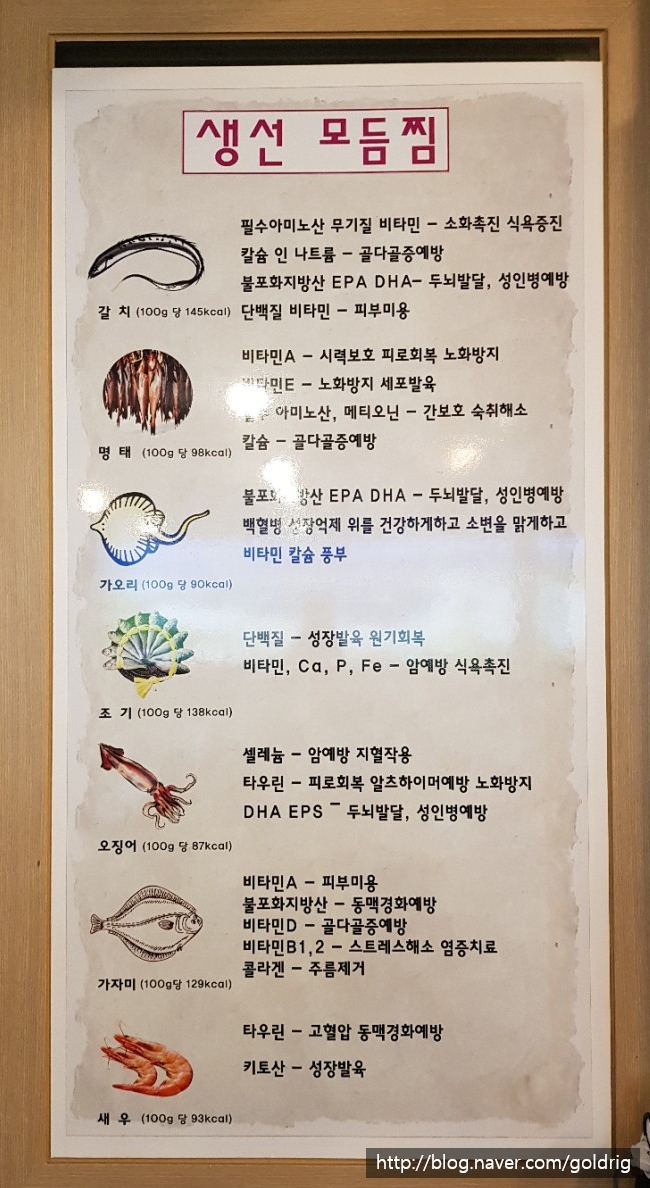 생선 모듬찜
필수아미노산 무기질 비타민 - 소화촉진 식욕증진
칼슘 인 나트륨 - 골다골증예방
불포화지방산 EPA DHA- 두뇌발달, 성인병예방
단백질 비타민 - 피부미용
갈 치 (100g 당 145kcal)
비타민A - 시력보호 피로회복 노화방지
비타민E - 노화방지 세포발육
아미노산, 메티오닌 - 간보호 숙취해소
칼슘 - 골다골증예방
명 태 (100g 당 98kcal)
불포화지방산 EPA DHA - 두뇌발달, 성인병예방
백혈병 성장억제 위를 건강하게하고 소변을 맑게하고
비타민 칼슘 풍부
가오리 (100g 당 90kcal)
단백질 - 성장발육 원기회복
비타민, Ca, P, Fe - 암예방 식욕촉진
조 기 (100g 당 138kcal)
셀레늄 - 암예방 지혈작용
타우린 - 피로회복 알츠하이머예방 노화방지
DHA EPS - 두뇌발달, 성인병예방
오징어 (100g 당 87kcal)
비타민A - 피부미용
불포화지방산 - 동맥경화예방
비타민D - 골다골증예방
비타민B1,2 - 스트레스해소 염증치료
콜라겐 - 주름제거
가자미 (100g당 129kcal)
타우린 - 고혈압 동맥경화예방
키토산 - 성장발육
새 우 (100g 당 93kcal)
http://blog.naver.com/goldrig